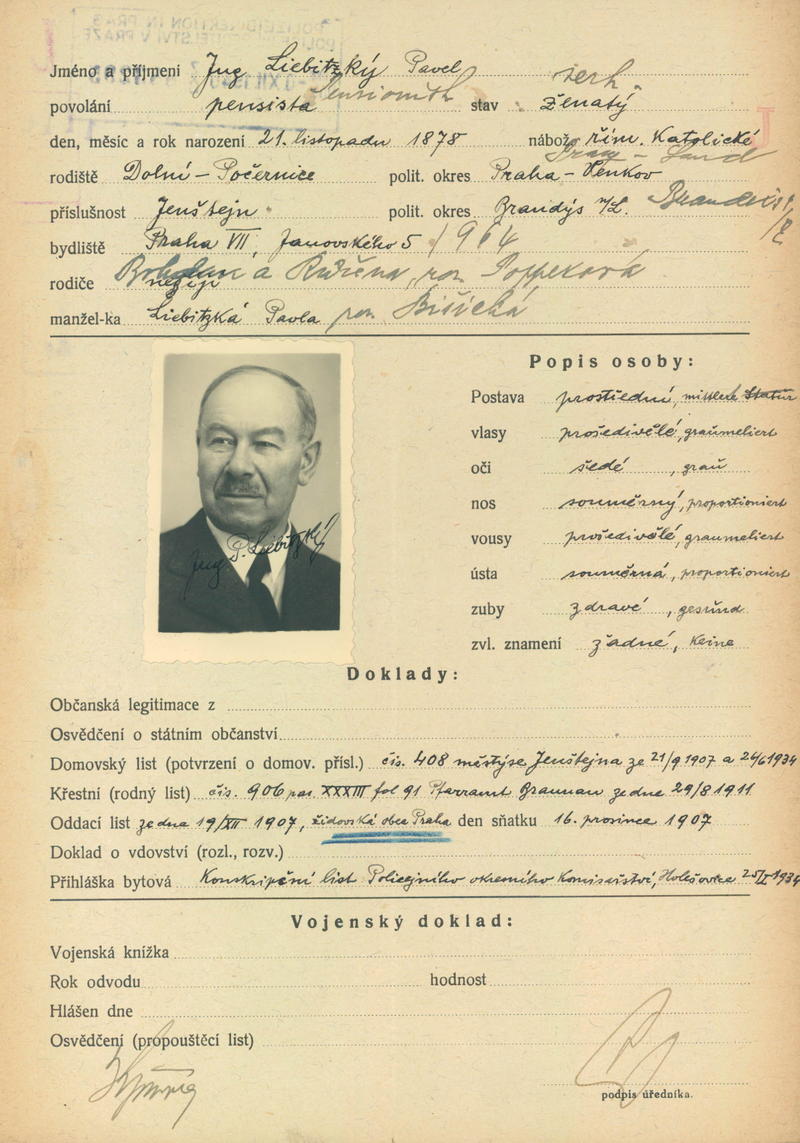 POLIZEIDIREKTION IN PRAG
Jméno a příjmení Ing Liebitzký Pavel
verh.
povolání pensista stav ženatý
den, měsíc a rok narození 21. listopadu 1878 nábož. řím. Katolické
Prag - Land
rodiště Dolní - Počernice polit. okres Praha - Venkov
příslušnost Jenštejn polit. okres Brandýs n/L. Brandeis
bydliště Praha VII, Janovského 5 / 964
rodiče Bohdan a Růžena, roz.
nežijí
manžel-ka Liebitzká Pavla roz.
Popis osoby:
Postava prostřední, mittlere Statur
vlasy prošedivělé, graumeliert
oči šedé, grau
nos souměrný, proportioniert
vousy prošedivělé, graumeliert
ústa souměrná, proportioniert
zuby zdravé, gesund
zvl. znamení žádné, keine
Ing P. Liebitzký
Doklady:
Občanská legitimace z
Osvědčení o státním občanství
Domovský list (potvrzení o domov. přísl.) čís. 408 městýse Jenštejna ze 21/9 1907 a 24/6 1934
Křestní (rodný list) čís. 906 XXXIII fol 91 Pfarramt Braunau ze dne 29/8 1911
Oddací list ze dna 19/XII 1907, židovská obec Praha den sňatku 16. prosince 1907
Doklad o vdovství (rozl., rozv.)
Přihláška bytová Konskripční list Policejního okresního Komisařství, Holešovice 25/I 1934
Vojenský doklad:
Vojenská knížka
Rok odvodu hodnost
Hlášen dne
Osvědčení (propouštěcí list)
podpis úředníka.